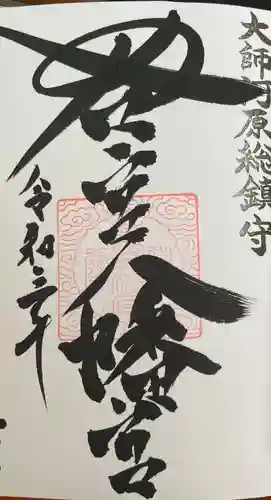 大師河原総鎮守
若宮八幡宮
令和三年